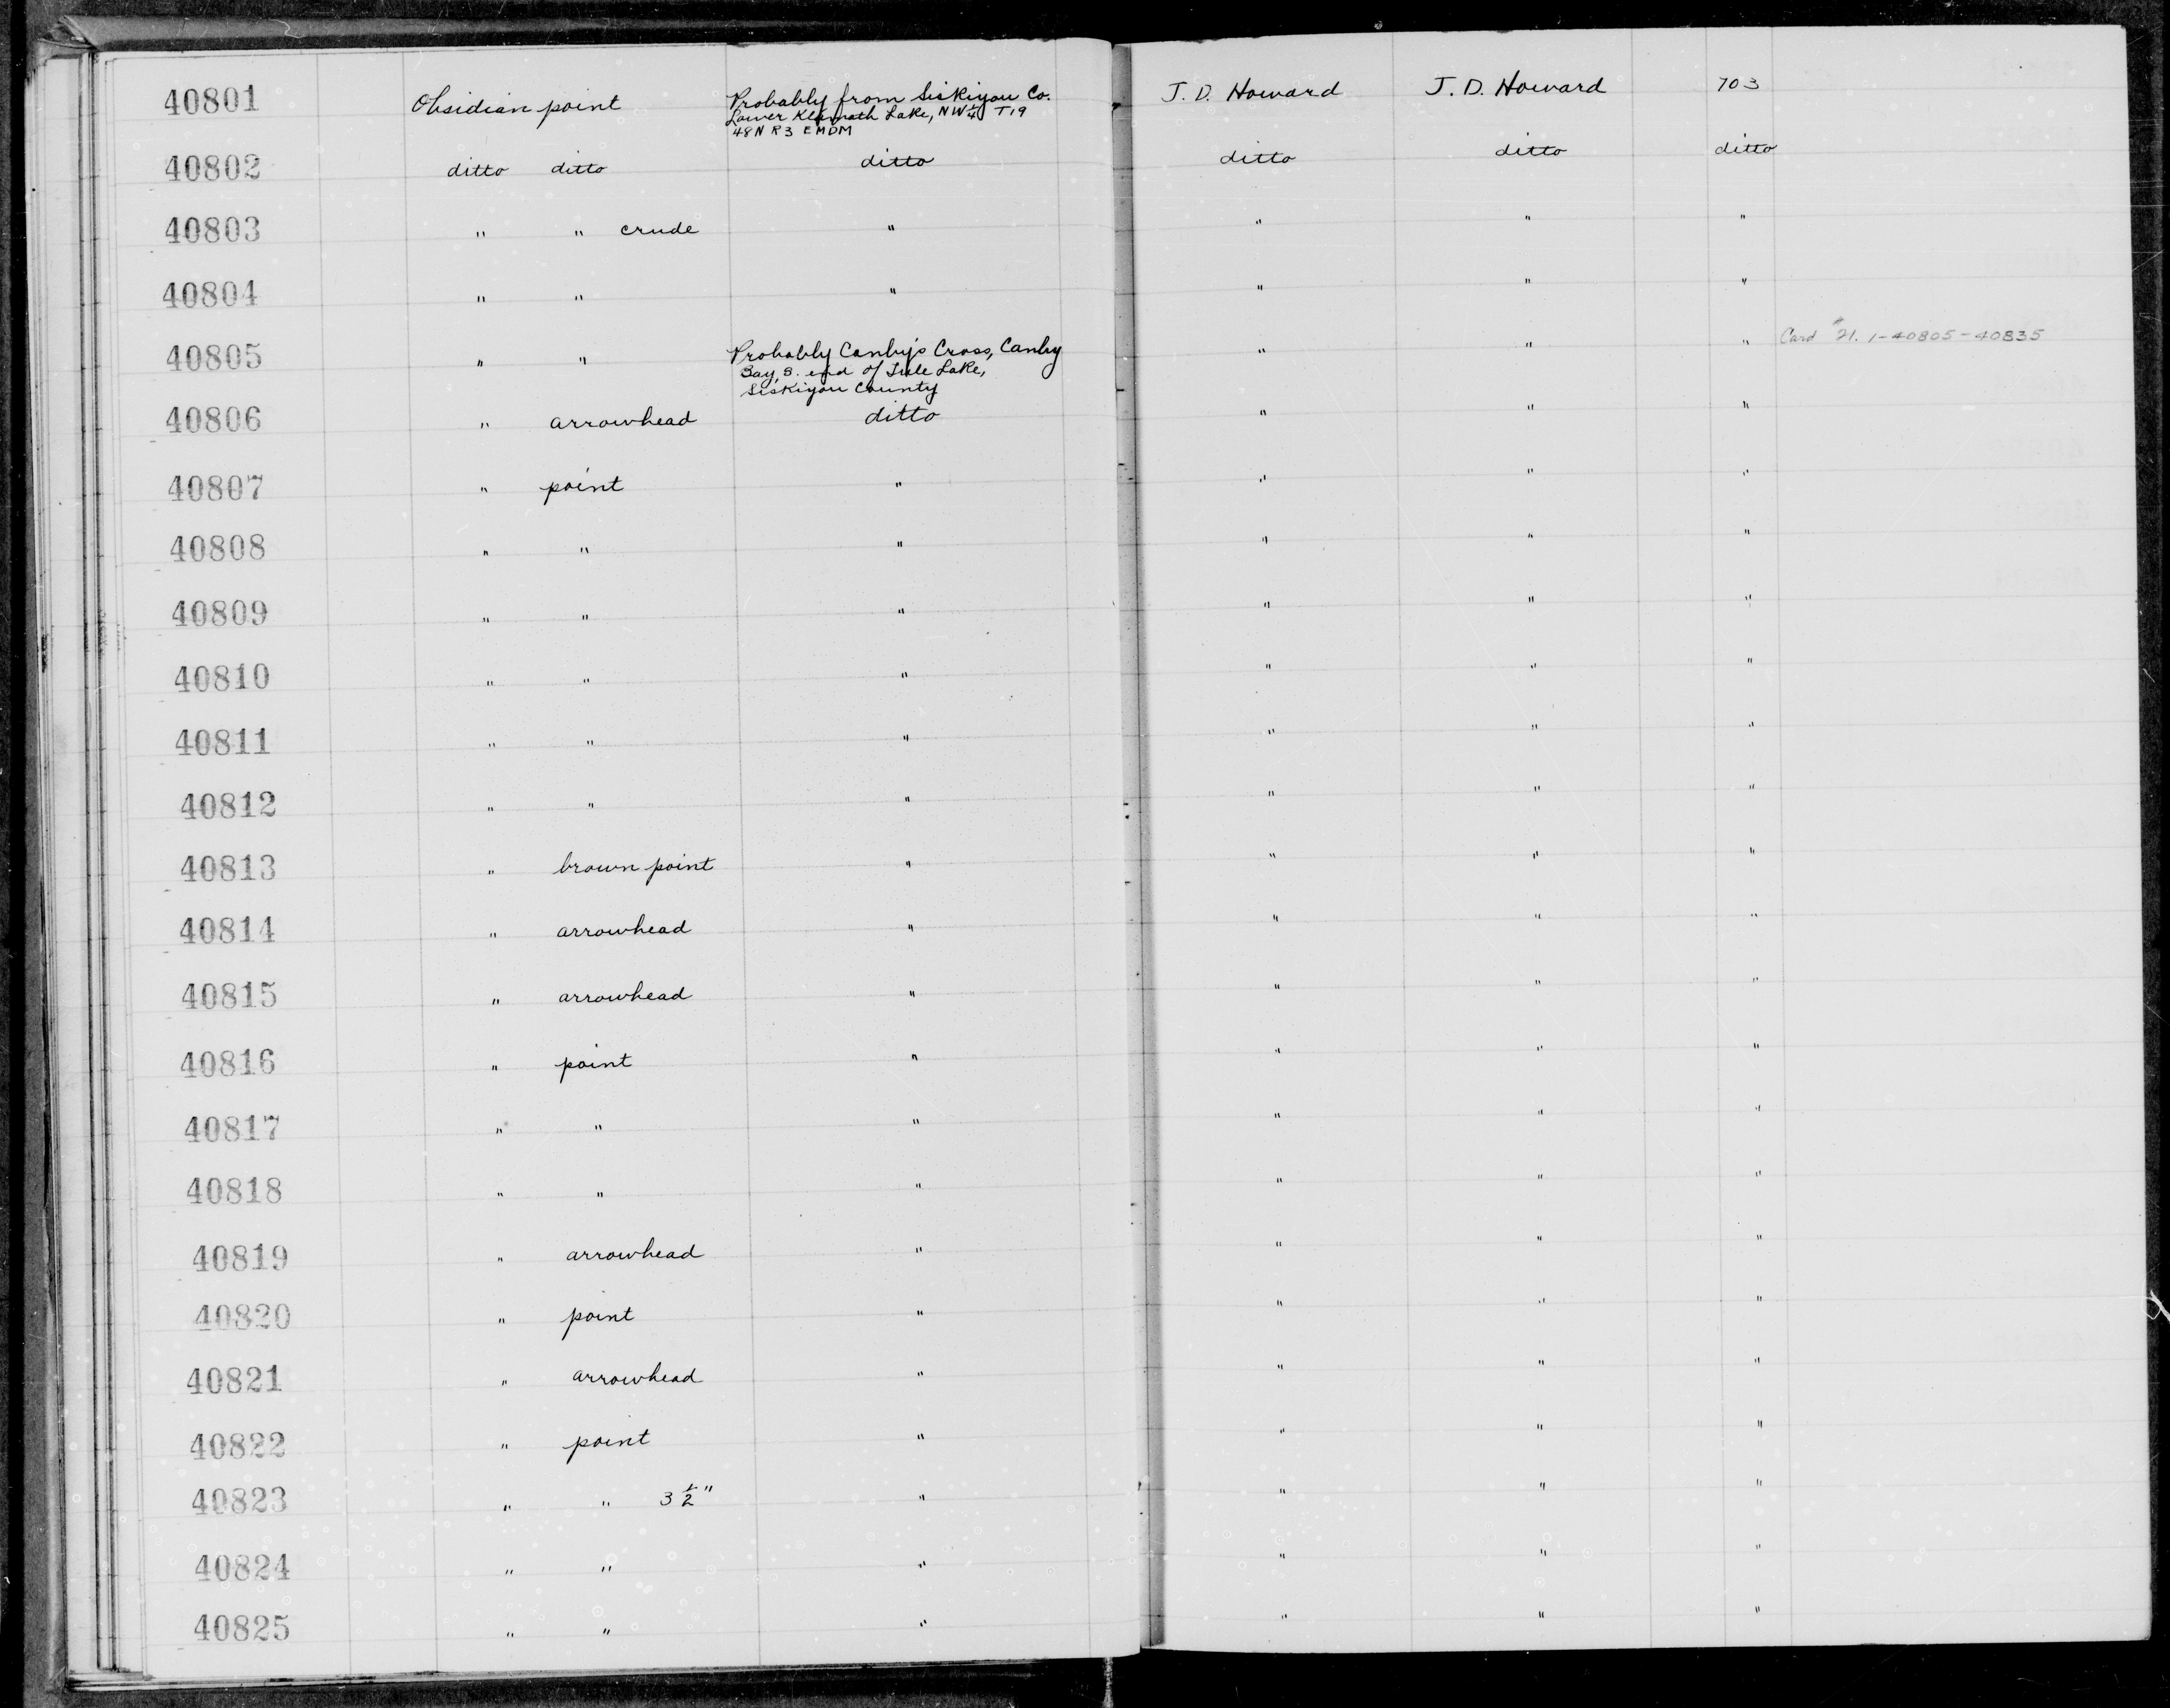 40801 Obsidian point Probably from Siskiyou Co. J. D. Howard J. D. Howard 703
Lower Klamath Lake, NW 1/4 T19
48N R3 EMDM
40802 ditto ditto ditto ditto ditto ditto
40803 " " crude " " " "
40804 " " " " " "
40805 " " Probably Canby's Cross, Canby " " " Card #21. 1-40805-40835
Bay, S. end of Tule Lake,
Siskiyou County
40806 " arrowhead ditto " " "
40807 " point " " " "
40808 " " " " " "
40809 " " " " " "
40810 " " " " " "
40811 " " " " " "
40812 " " " " " "
40813 " brown point " " " "
40814 " arrowhead " " " "
40815 " arrowhead " " " "
40816 " point " " " "
40817 " " " " " "
40818 " " " " " "
40819 " arrowhead " " " "
40820 " point " " " "
40821 " arrowhead " " " "
40822 " point " " " "
40823 " " 3 1/2" " " " "
40824 " " " " " "
40825 " " " " " "